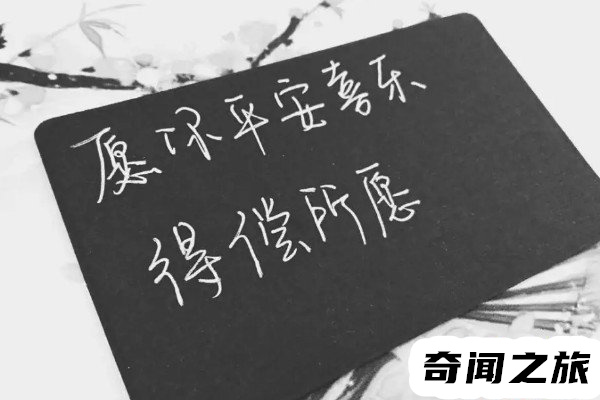 愿你平安喜乐
得偿所愿
奇闻之旅